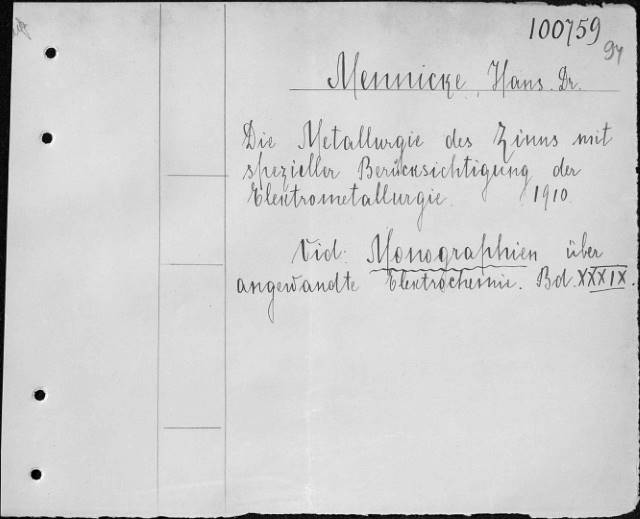 100759
97
Mennicke, Hans. Dr.
Die Metallurgie des Zinns mit
spezieller Berücksichtigung der
Elektrometallurgie. 1910
Vid: Monographien über
angewandte Elektrochemie. Bd. XXXIX.